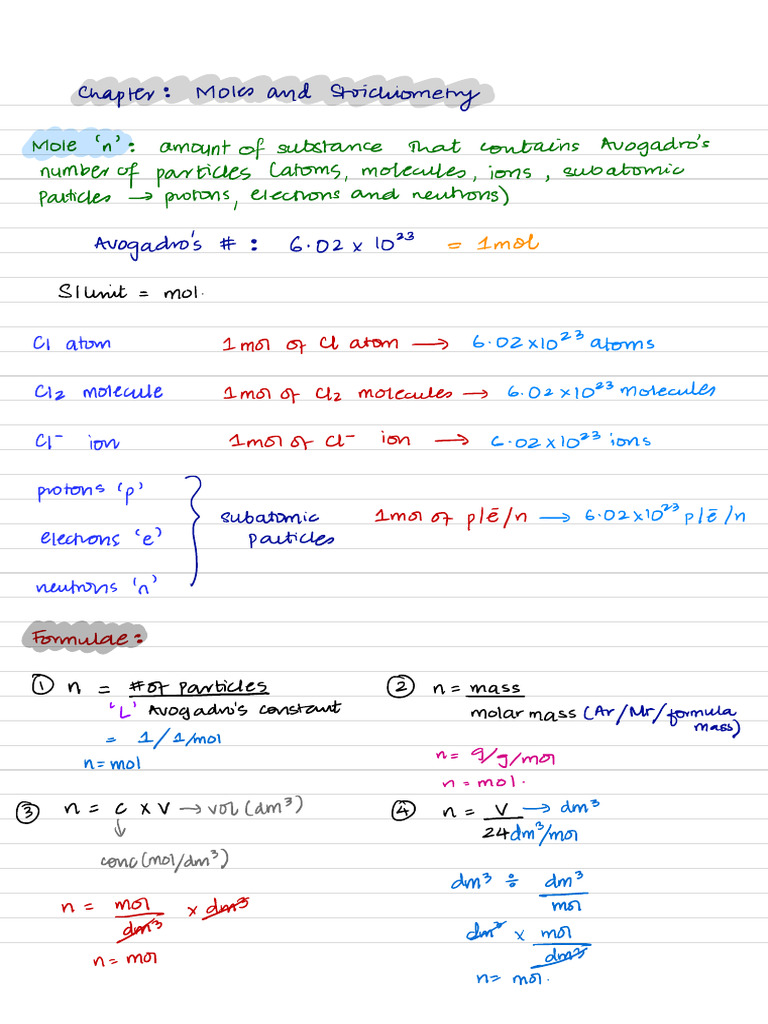 Chapter: Moles and Stoichiometry
Mole 'n': amount of substance that contains Avogadro's
number of particles (atoms, molecules, ions, subatomic
Particles → protons, electrons and neutrons)
Avogadro's # : 6.02 x 10²³ = 1mol
SI Unit = mol.
Cl atom 1 mol of Cl atom → 6.02 x 10²³ atoms
Cl₂ molecule 1 mol of Cl₂ molecules → 6.02 x 10²³ molecules
Cl⁻ ion 1 mol of Cl⁻ ion → 6.02 x 10²³ ions
protons 'p'
electrons 'e'
neutrons 'n'
subatomic
particles
1 mol of p/ē/n → 6.02 x 10²³ p/ē/n
Formulae:
① n = # of particles
'L' Avogadro's constant
= 1/1/mol
n = mol
② n = mass
molar mass (Ar/Mr/formula
mass)
n = g/g/mol
n = mol.
③ n = c x v → vol (dm³)
↓
conc (mol/dm³)
n = mol x dm³
dm³
n = mol
④ n = v → dm³
24 dm³/mol
dm³ ÷ dm³
mol
dm³ x mol
dm³
n = mol.